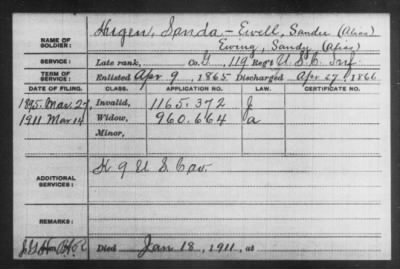 NAME OF SOLDIER: Hugen, Sanda, - Ewell, Sander (Alias)
Ewing, Sandy (Alias)
SERVICE: Late rank, Co. G, 119 Reg't U.S.C. Inf.
TERM OF SERVICE: Enlisted Apr 9, 1865 Discharged Apr 27, 1866
DATE OF FILING. CLASS. APPLICATION NO. LAW. CERTIFICATE NO.
1895 Mar. 27, Invalid, 1165.372 J
1911 Mar 14 Widow, 960.664 a
Minor,
ADDITIONAL SERVICES: K 9 U.S. Cav.
REMARKS:
Died Jan 18, 1911, at